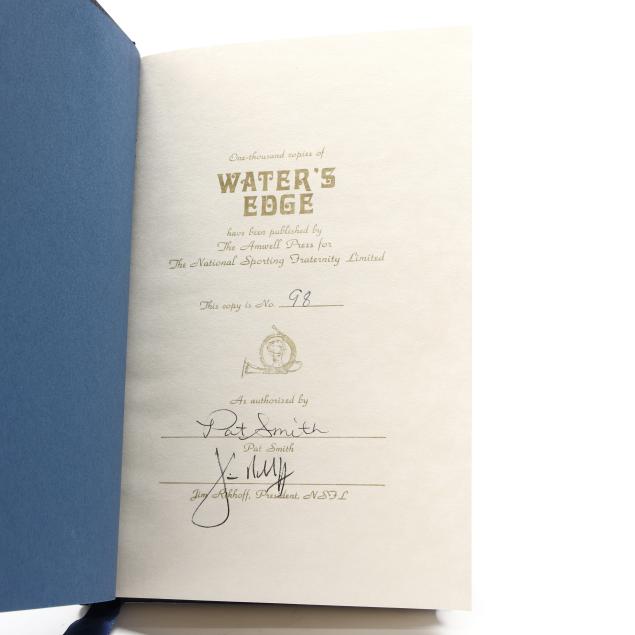 One-thousand copies of
WATER'S
EDGE
have been published by
The Amwell Press for
The National Sporting Fraternity Limited
This copy is No. 98
As authorized by
Pat Smith
Pat Smith
Jim Rikhoff, President, NSFL